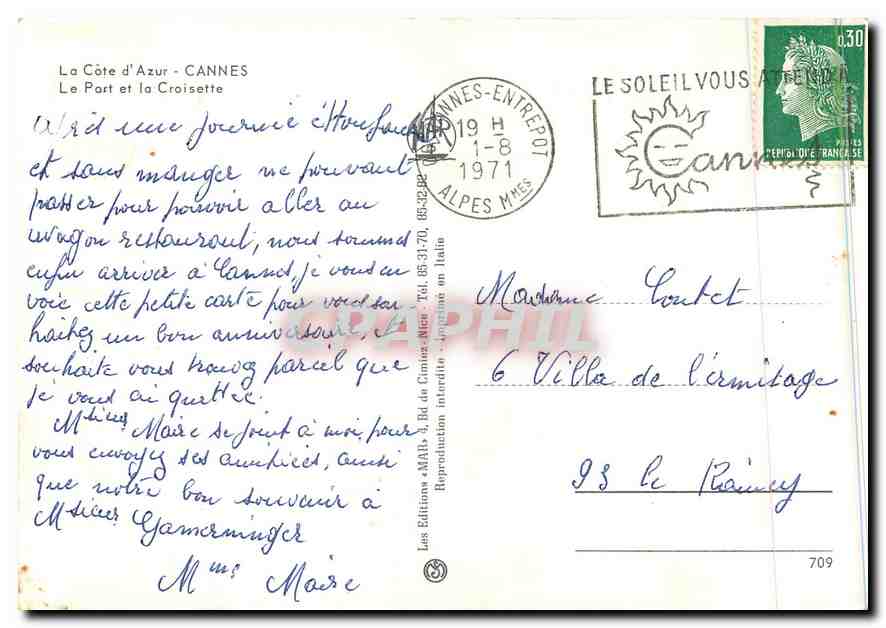 La Côte d'Azur - CANNES
Le Port et la Croisette
une journée
et sans manger ne pouvant
passer pour pouvoir aller au
wagon restaurant, nous sommes
enfin arriver à Cannes, je vous en
voie cette petite carte pour vous sou
haitez un bon anniversaire, et
souhaite vous trouvez pareil que
je vous ai quettée.
Msieur Maire se joint à moi, pour
vous envoyez ses amitiées, ainsi
que notre bon souvenir à
Msieur Gamerminger
Mme Maire
Les Editions «MAR» 4, Bd de Cimiez - Nice - Tél. 85-31-70, 85-32-82
Reproduction interdite - Imprimé en Italie
MAR
CANNES-ENTREPOT
19 H
1-8
1971
ALPES Mmes
LE SOLEIL VOUS ATTEND A
Cannes
0,30
POSTES
REPUBLIQUE FRANCAISE
Madame Coutet
6 Villa de l'ermitage
93 le Raincy
709
CPAPHIL